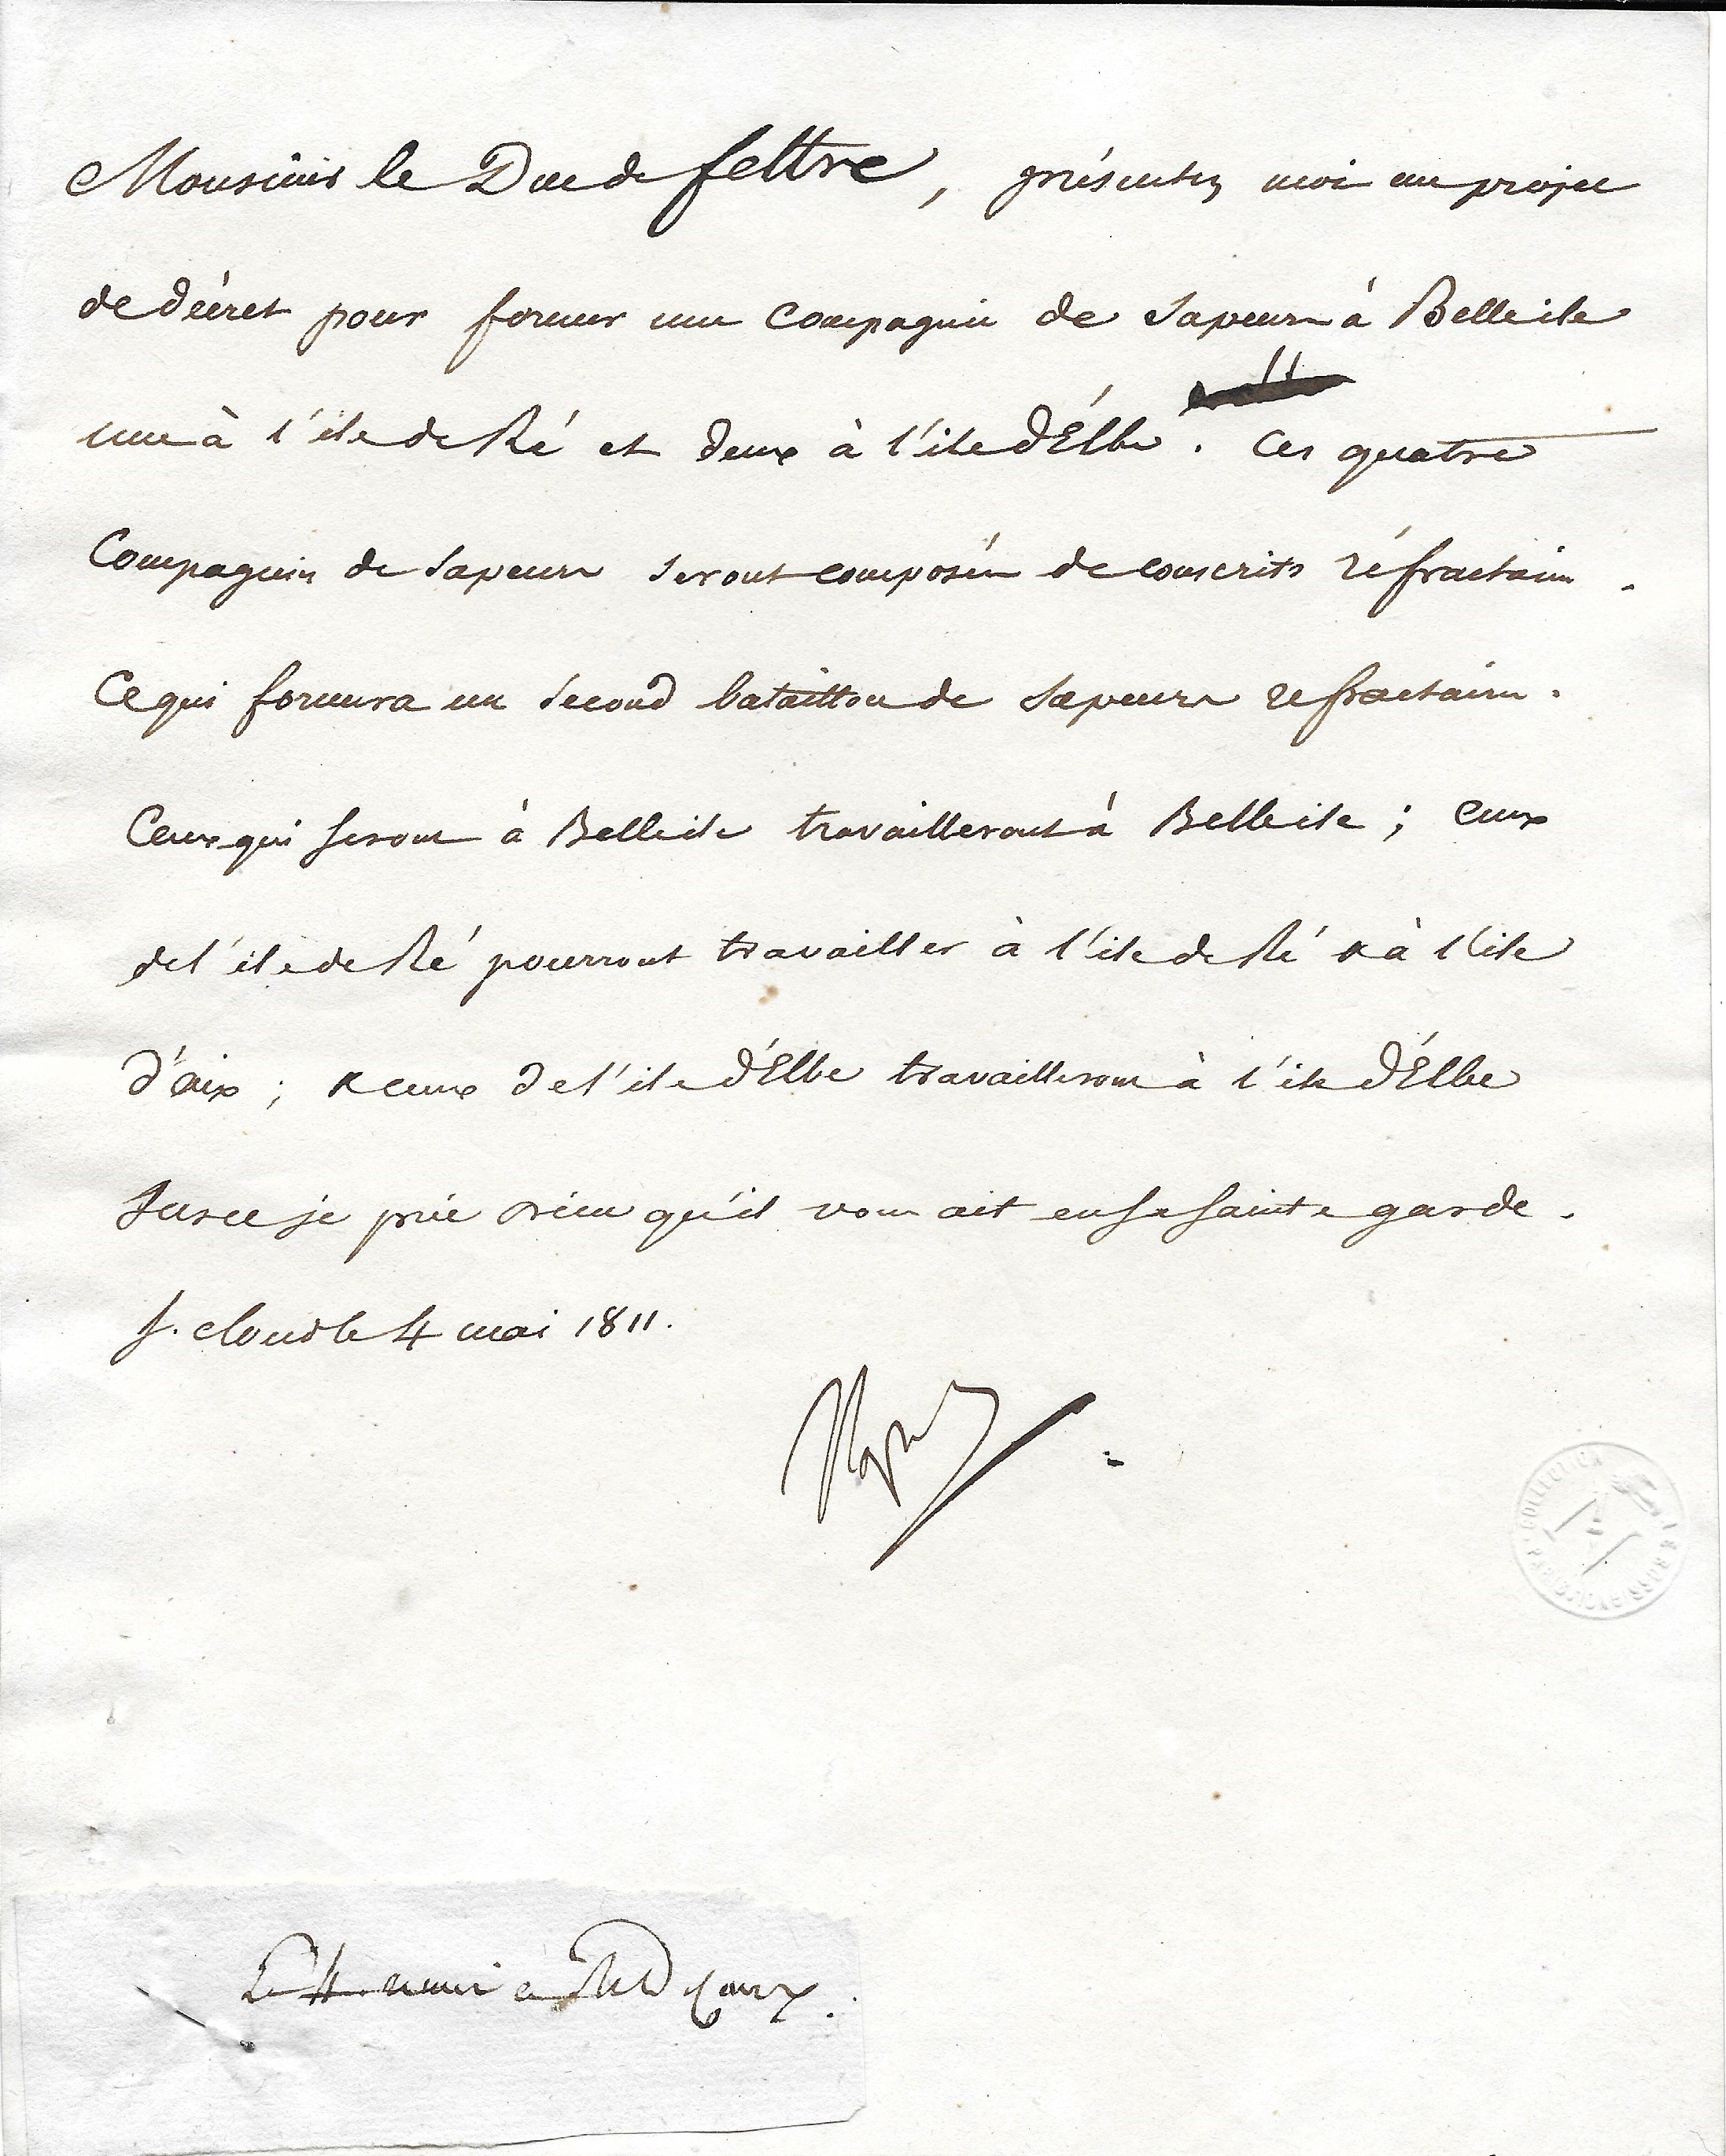 Monsieur le Duc de feltre, présentez moi un projet
de décret pour former une Compagnie de Sapeurs à Belleile
une à l'ile de Ré et deux à l'ile d'Elbe. Ces quatre
Compagnies de Sapeurs seront composées de conscrits réfractaires.
Ce qui formera un Second bataillon de Sapeurs refractaires.
Ceux qui seront à Belleile travailleront à Belleile; ceux
de l'ile de Ré pourront travailler à l'ile de Ré & à l'ile
d'aix; & ceux de l'ile d'Elbe travailleront à l'ile d'Elbe
Sur ce je prie Dieu qu'il vous ait en sa sainte garde.
St. cloud le 4 mai 1811.
Np
COLLECTION
Le 4